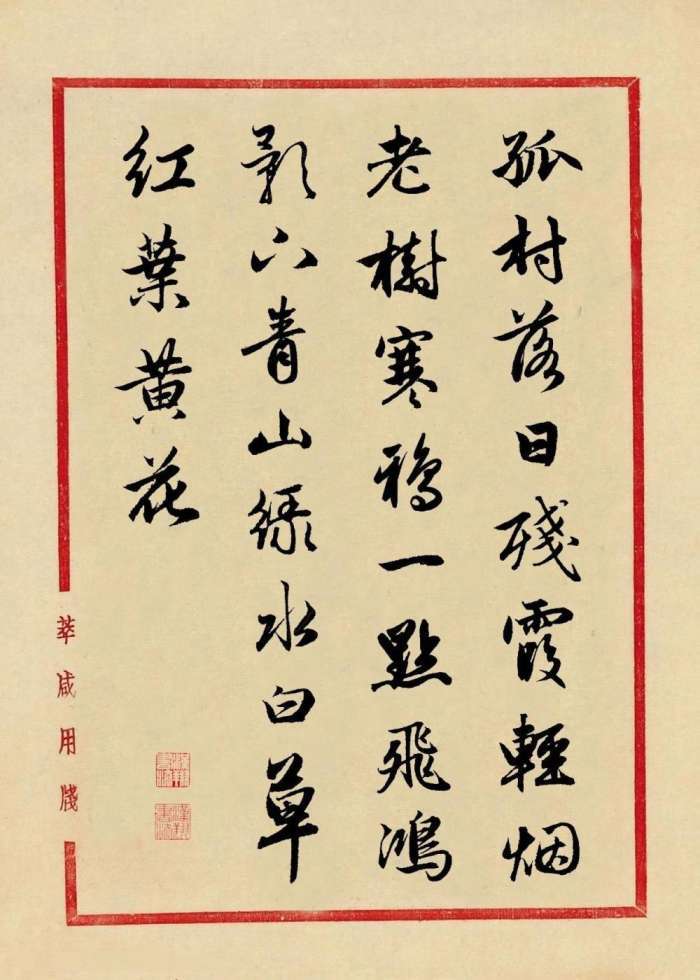 孤村落日殘霞輕烟
老樹寒鴉一點飛鴻
影下青山綠水白草
红葉黄花
莘咸用牋